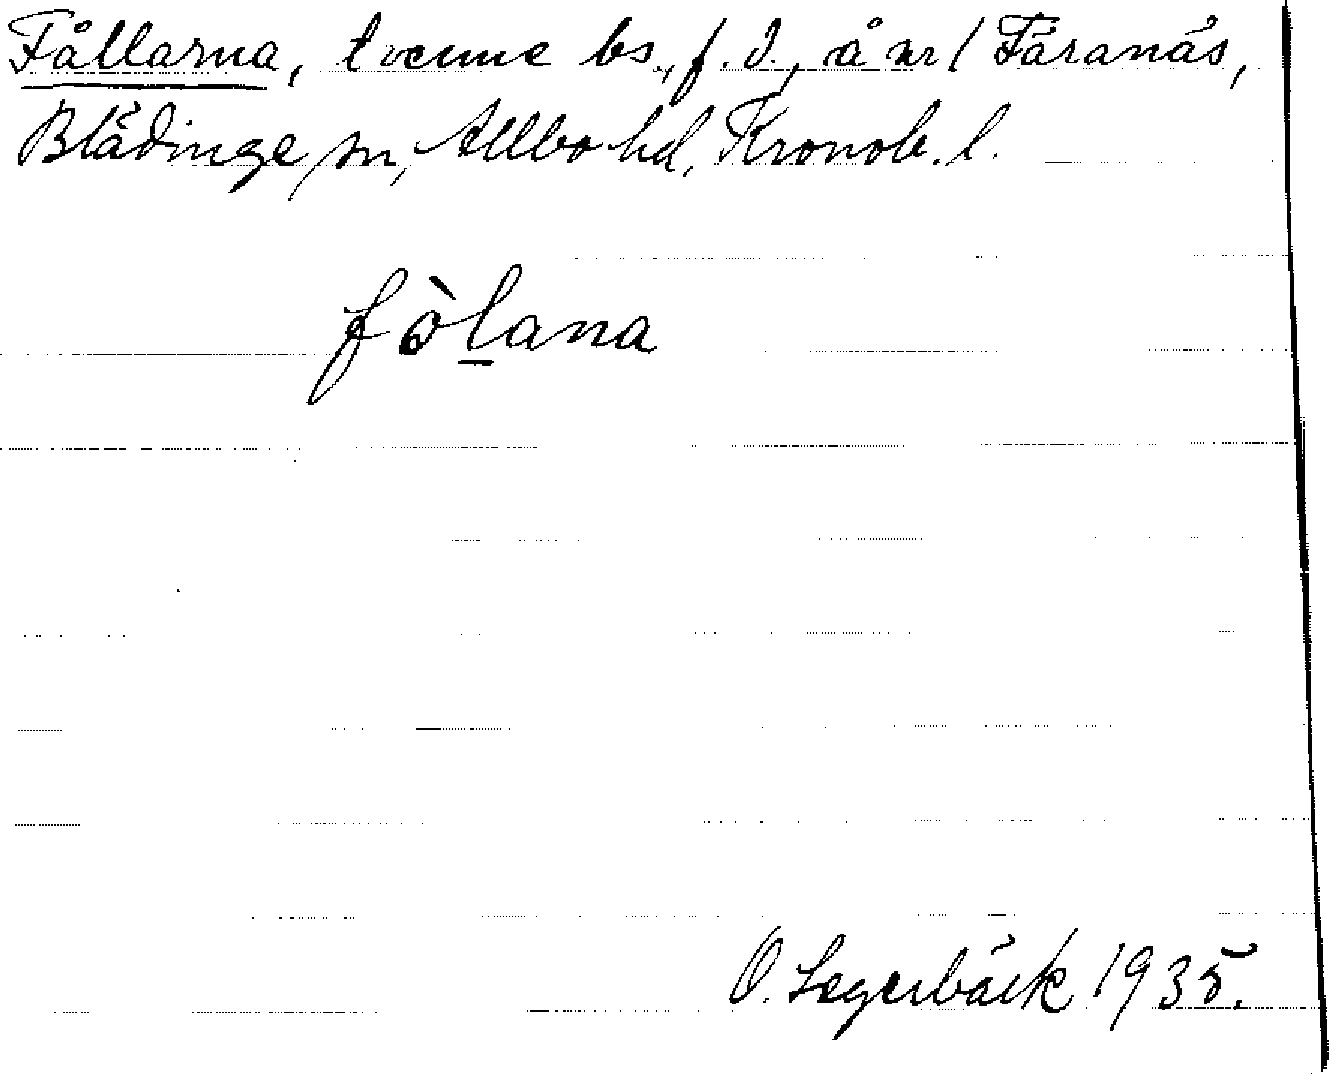 Fållarna, tvenne bs., f. d., å nr 1 Täranäs,
Blädinge sn, Allbo hd, Kronob. l.
fòlana
O. Segerbäck 1935.